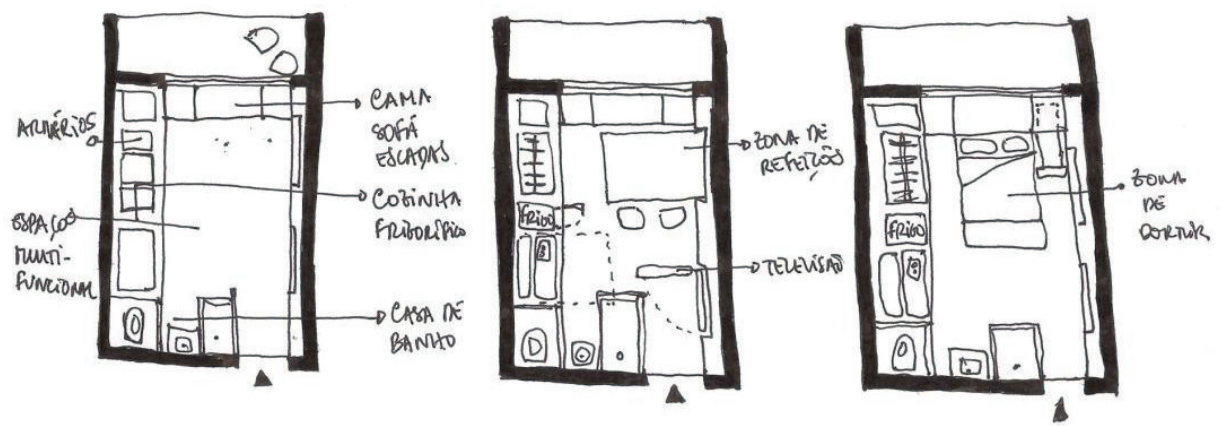 ARMÁRIOS
ESPAÇO
MULTI-
FUNCIONAL
CAMA
SOFÁ
ESCADAS
COZINHA
FRIGORÍFICO
CASA DE
BANHO
FRIGO
ZONA DE
REFEIÇÕES
TELEVISÃO
FRIGO
ZONA
DE
DORMIR